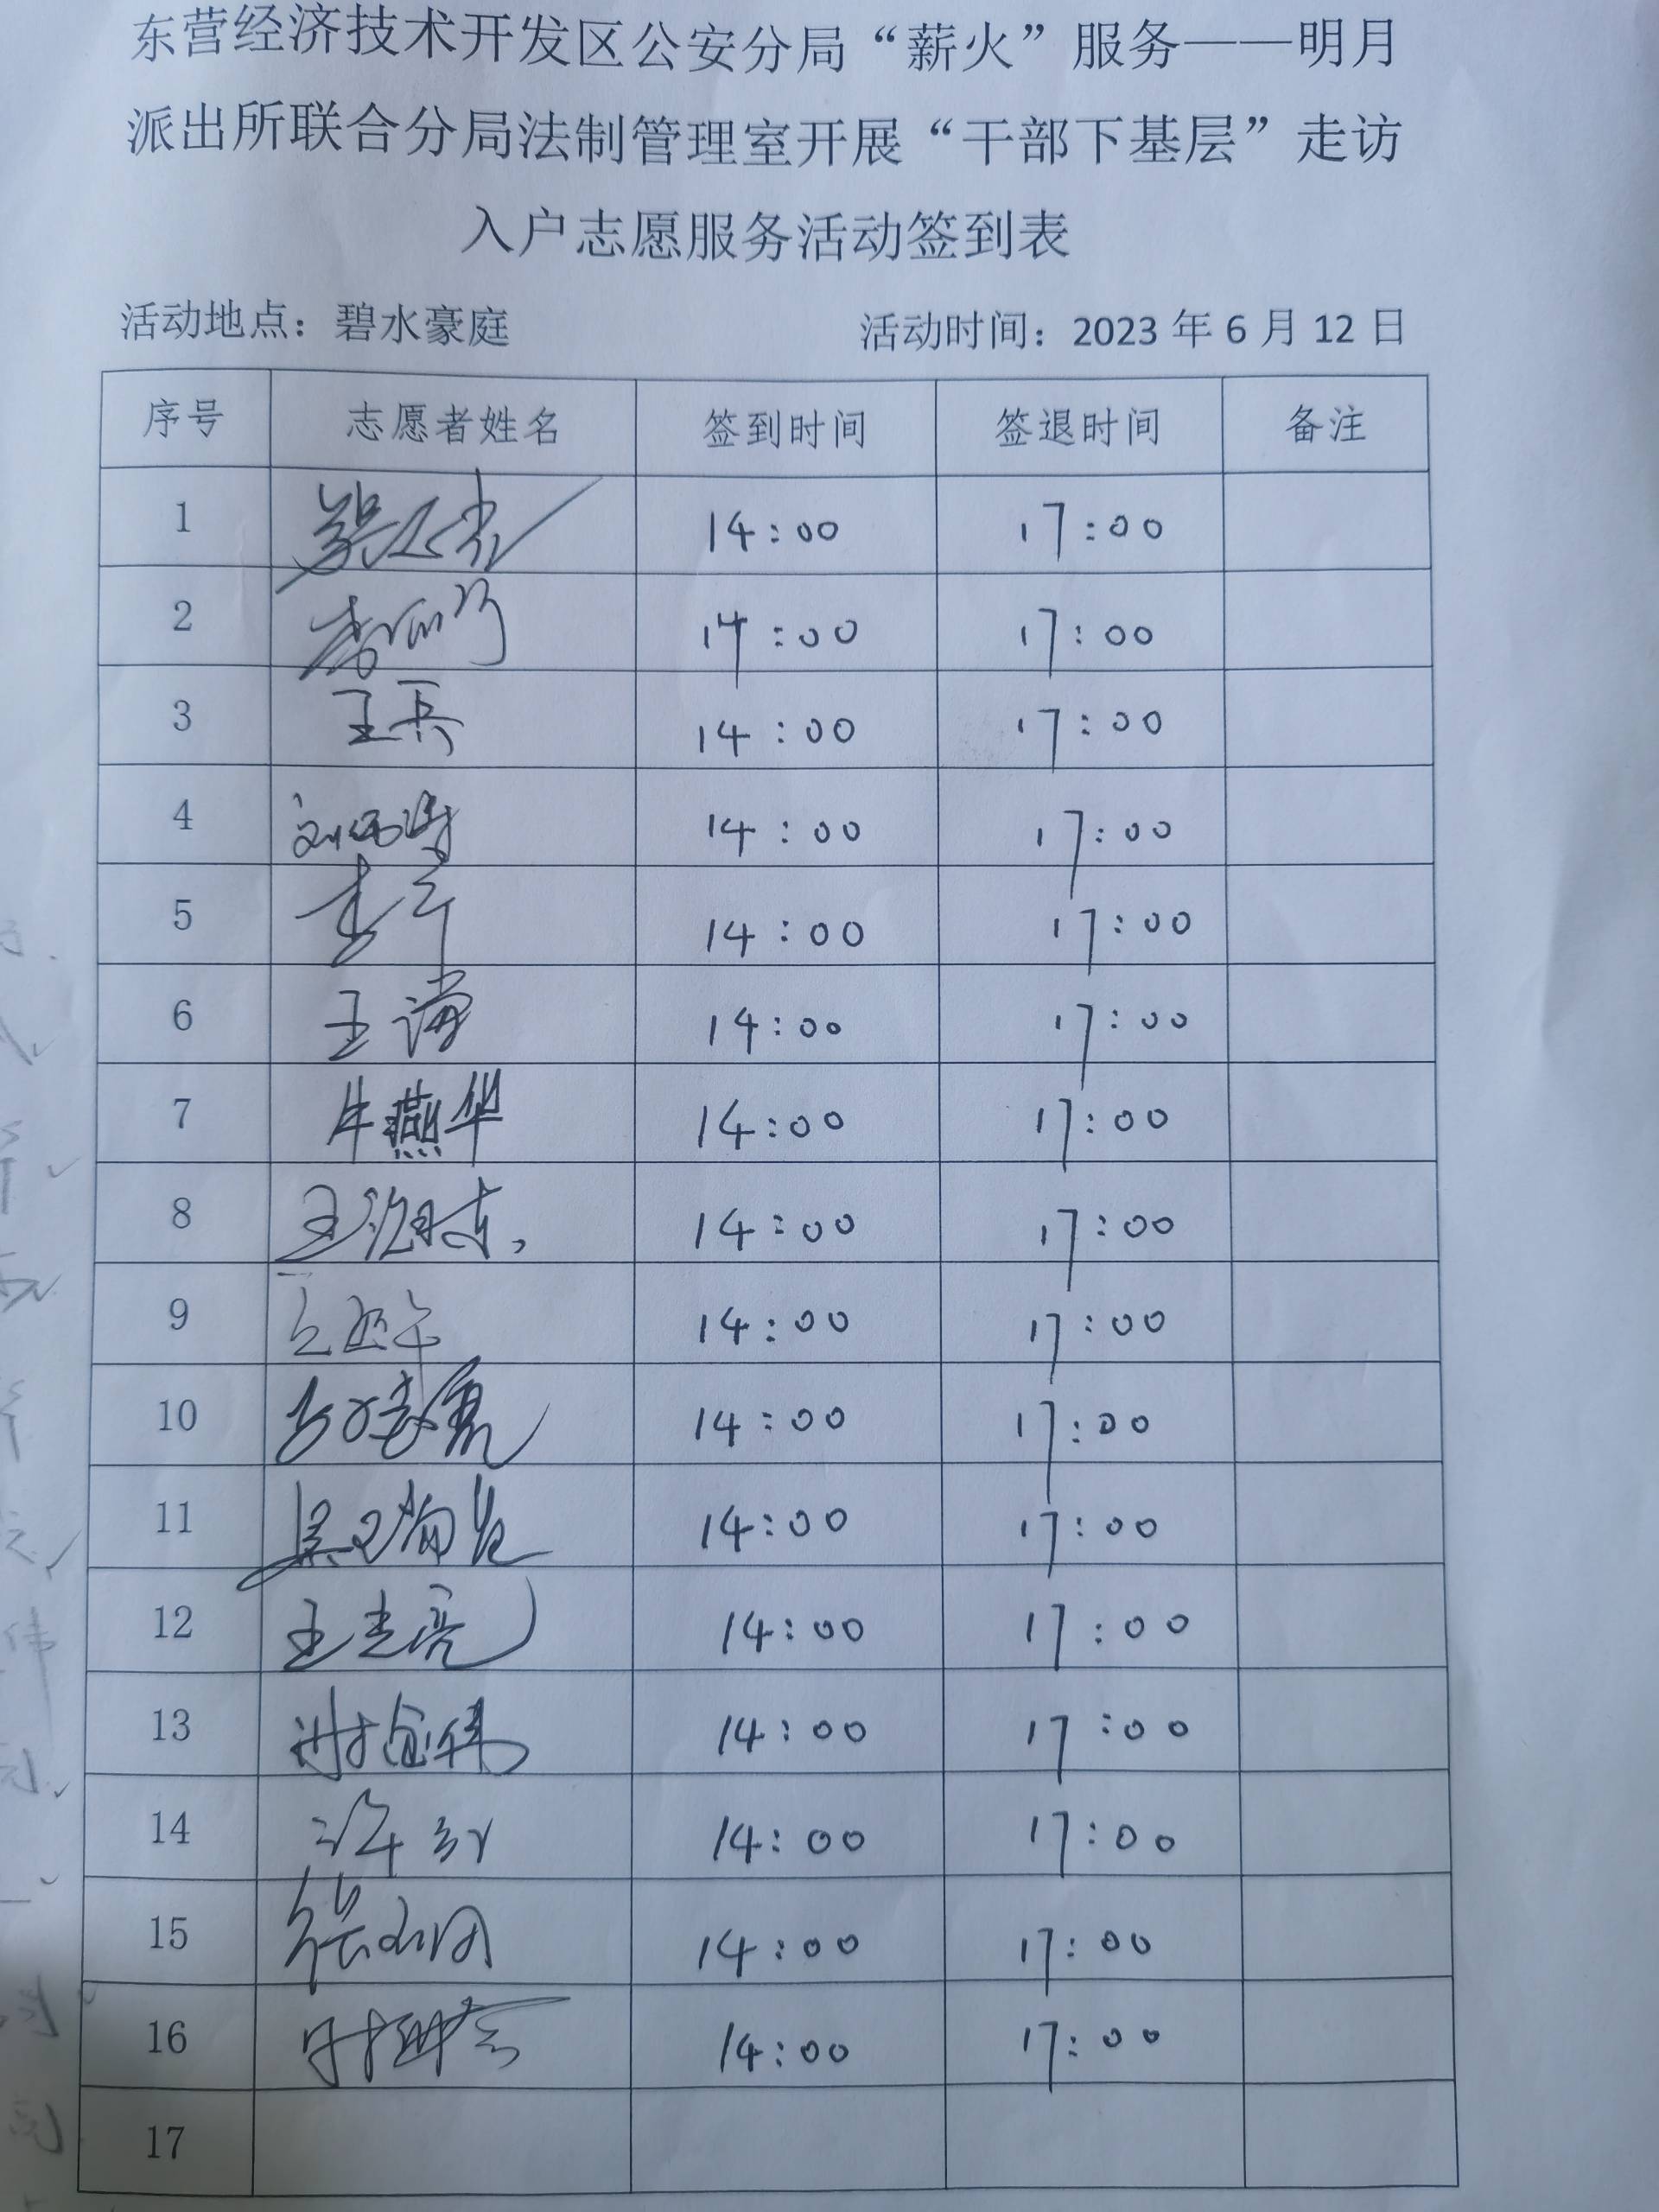 东营经济技术开发区公安分局“薪火”服务——明月
派出所联合分局法制管理室开展“干部下基层”走访
入户志愿服务活动签到表
活动地点：碧水豪庭 活动时间：2023年6月12日
序号 志愿者姓名 签到时间 签退时间 备注
1 14:00 17:00
2 14:00 17:00
3 王兵 14:00 17:00
4 14:00 17:00
5 李军 14:00 17:00
6 王海 14:00 17:00
7 牛燕华 14:00 17:00
8 14:00 17:00
9 14:00 17:00
10 14:00 17:00
11 14:00 17:00
12 王志亮 14:00 17:00
13 14:00 17:00
14 14:00 17:00
15 14:00 17:00
16 14:00 17:00
17